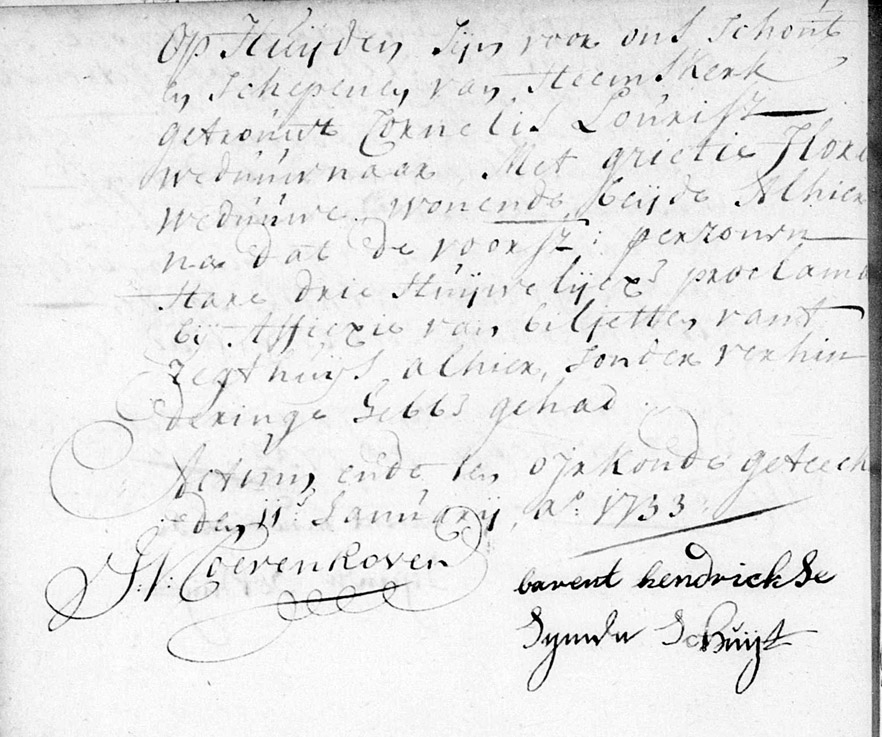 Op Huijden Sijn voor ons Schout
en Schepenen van Heemskerk
getrouwt Cornelis Lourisz
weduwnaar Met grietie Flori
weduwe, wonende beijde Alhier
na dat de voorsz: perzoonen
Hare drie Huijwelijexs proclama
bij Affixie van biljetten vant
Regthuijs alhier, Sonder verhin
deringe hebbs gehad
Actum ende ten oirkonde geteeck
den 11e Januarij, ao: 1733
J. V: Coevenhoven
barent hendrickse
Symon Schuijt